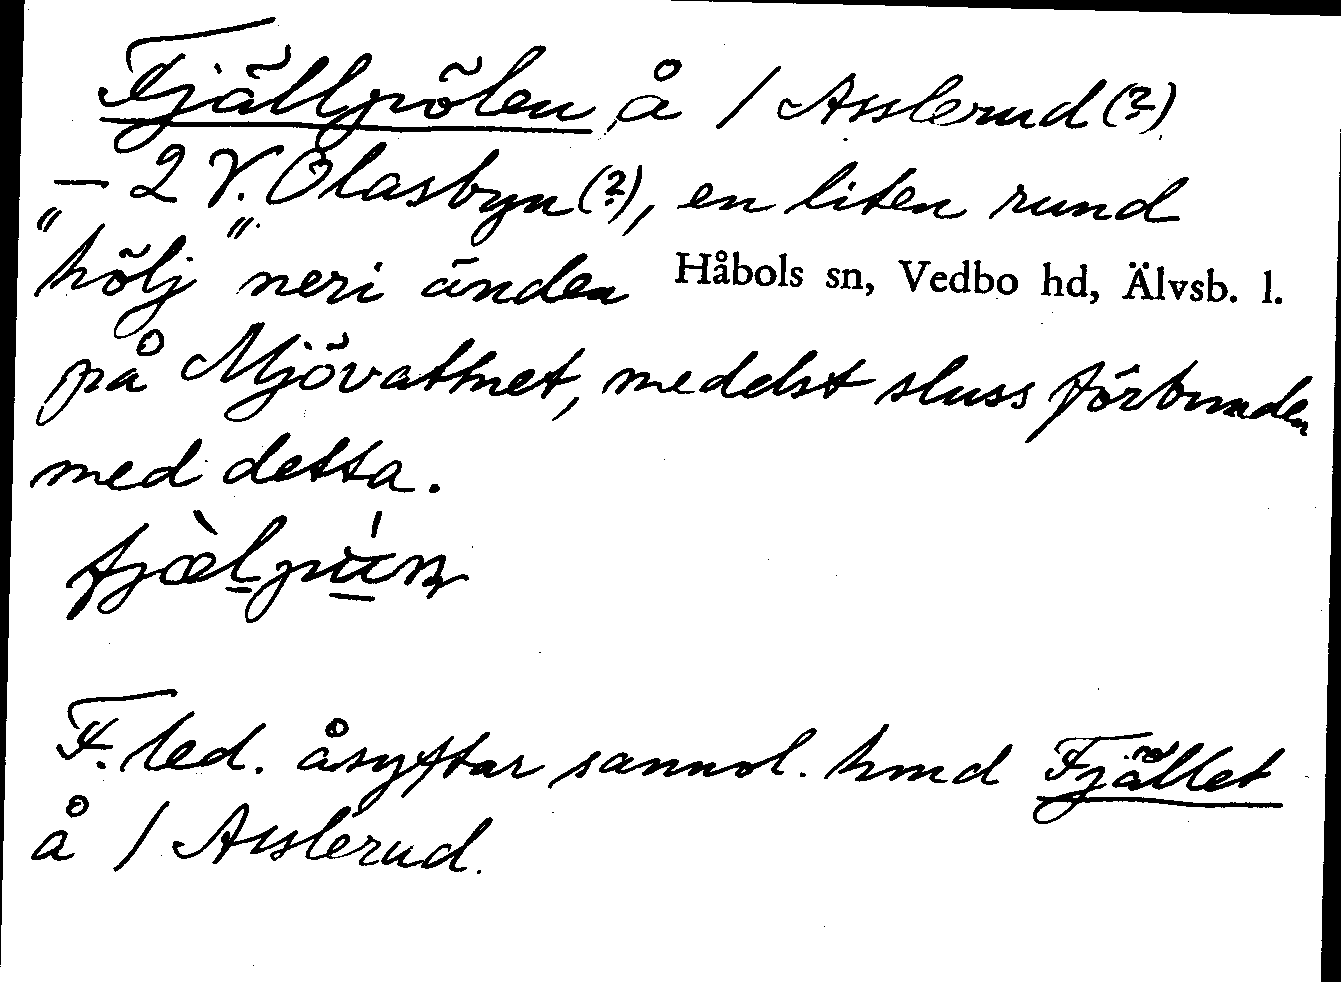 Fjällpölen å 1 Asslerud (?)
— 2 V. Olasbyn (?), en liten rund
"hölj" neri änden Håbols sn, Vedbo hd, Älvsb. l.
på Mjövattnet, medelst sluss förbunden
med detta.
F. led. åsyftar sannol. hmd Fjället
å 1 Asslerud.